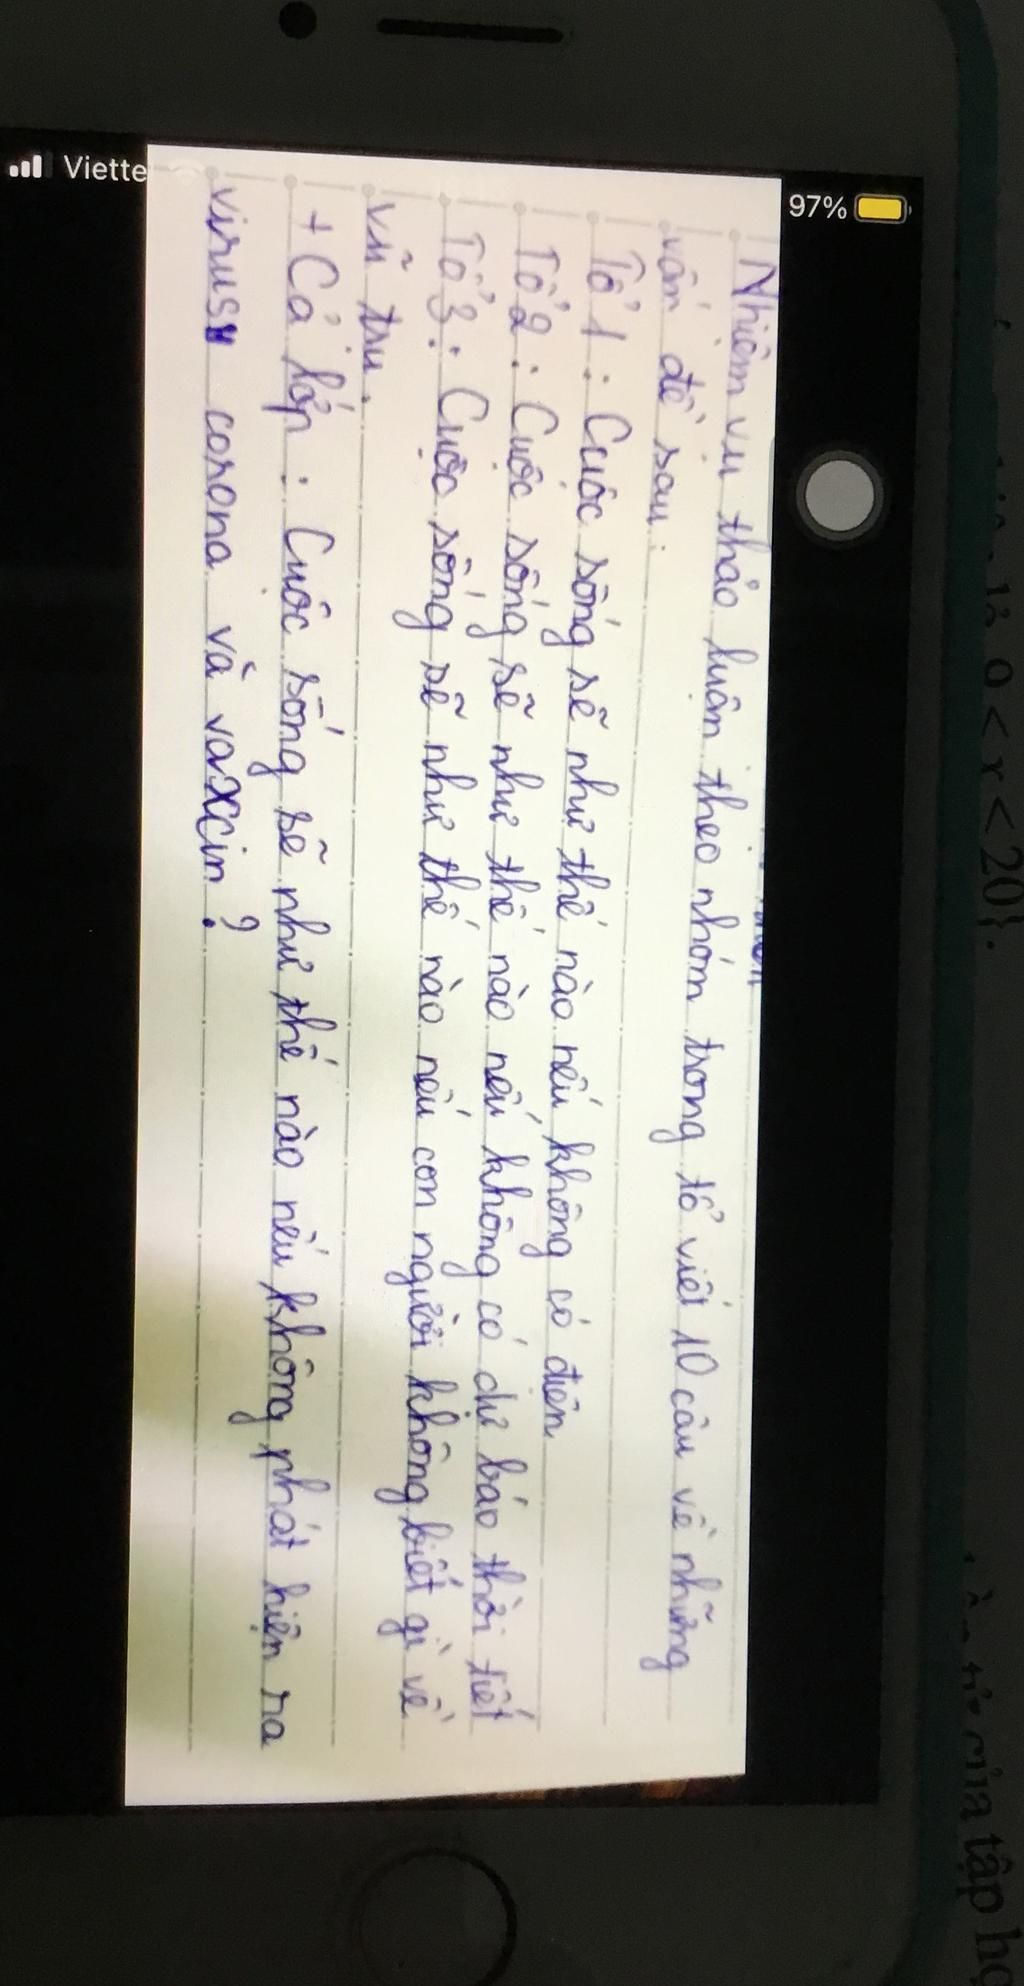 Viette
97%
Nhiệm vụ thảo luận theo nhóm trong tổ viết 10 câu về những
vấn đề sau:
Tổ 1: Cuộc sống sẽ như thế nào nếu không có điện
Tổ 2: Cuộc sống sẽ như thế nào nếu không có dự báo thời tiết
Tổ 3: Cuộc sống sẽ như thế nào nếu con người không biết gì về
vũ trụ.
+ Cả lớp: Cuộc sống sẽ như thế nào nếu không phát hiện ra
virus corona và vaxcin?
0 < x < 20}.
của tập